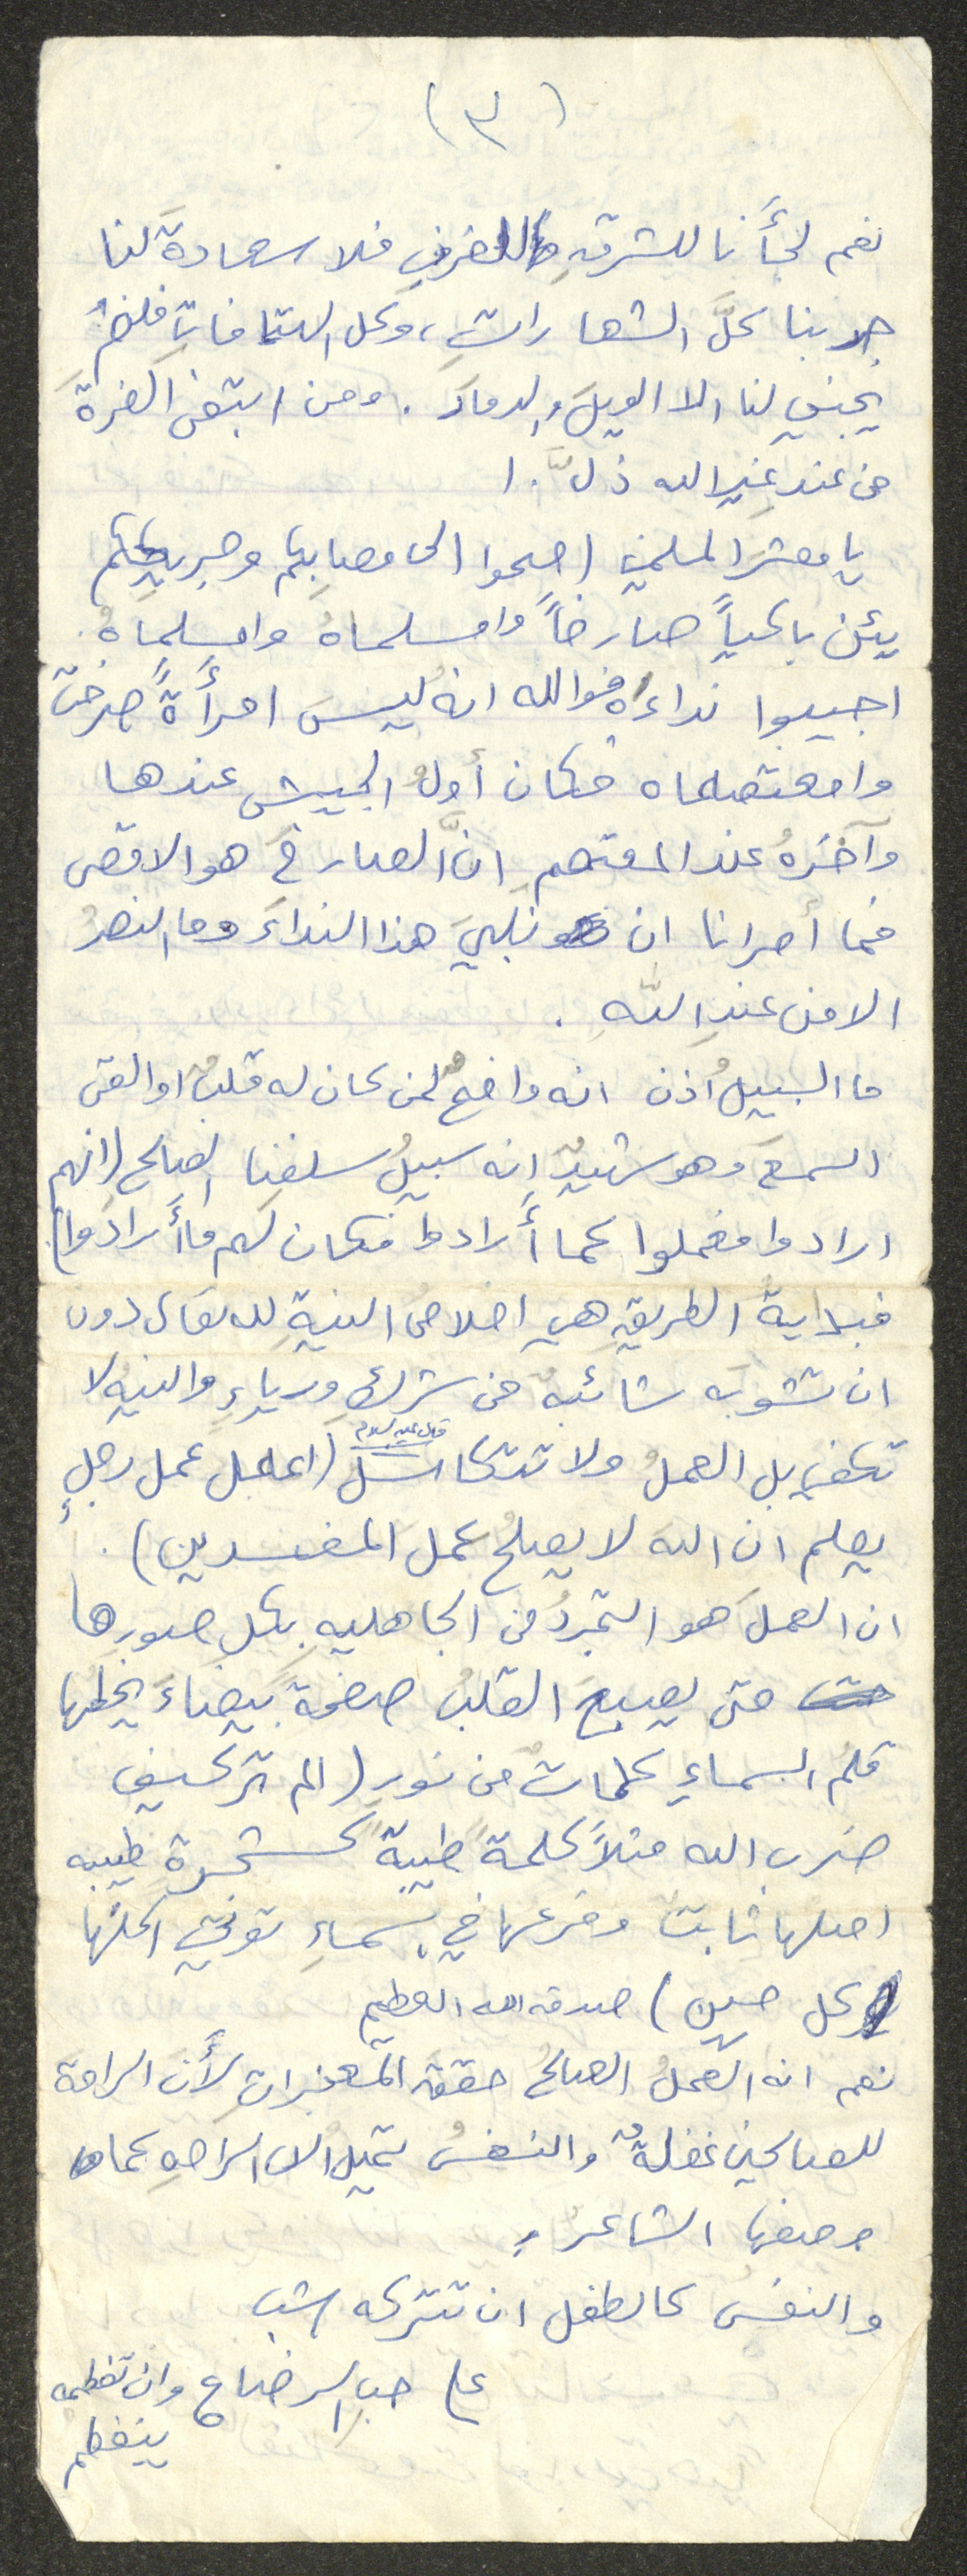 (٣)
نعم لجأنا للشرقِ وللغربِ فلا سعادةً لنا
جربنا كلَّ الشعاراتِ، وكل الهتافاتِ فلم
يجني لنا الا الويلَ والدمارَ. ومن ابتغى العزةَ
من عندِ غيرِ الله ذلَّ.!
يا معشرَ المسلمين اصحوا الى مصابكم وجريحكم
يئن باكياً صارخاً وامسلماهُ وامسلماهُ.
اجيبوا نداءه فوالله انه ليسَ امرأةً صرخت
وامعتصماه فكان أولُ الجيش عندها
وآخرهُ عند المعتصم انَّ الصارخَ هو الاقصى
فما أحرانا ان نلبيَ هذا النداءَ وما النصرُ
الا من عندِ اللّهِ.
ما السبيلُ اذن انه واضحٌ لمن كان له قلبٌ او القى
السمعَ وهو شهيدٌ إنه سبيلُ سلفنا الصالح (انهم
ارادوا فعملوا كما أرادوا فكان لهم ما أرادوا)
فبدايةُ الطريقِ هي اخلاصُ النيةِ لله تعالى دون
ان تشوبه شائبةٌ من شركٍ ورياءٍ والنيه لا
تكفي بل العملُ ولا تتكاسل قال عليه السلام (اعمل عمل رجلٍ
يعلم ان الله لا يصلحُ عمل المفسدين).
ان العملَ هو التجردُ من الجاهليه بكل صورها
حتى يصبحَ القلبُ صفحةً بيضاءَ يخطها
قلمُ السماءِ كلماتٌ من نورٍ (الم تر كيف
ضرب الله مثلاً كلمةً طيبةً كشجرةٍ طيبه
اصلها ثابت وفرعها في السماءِ تؤتي اكلها
كل حين) صدق الله العظيم
نعم انه العملُ الصالحُ حققَ المعجزاتِ لأن الراحة
للصالحين غفلةٌ والنفسُ تميل الى الراحهِ كما
وصفها الشاعرُ
والنفس كالطفل ان تتركه شب
على حبِ الرضاع وان تفطمه
ينفطم